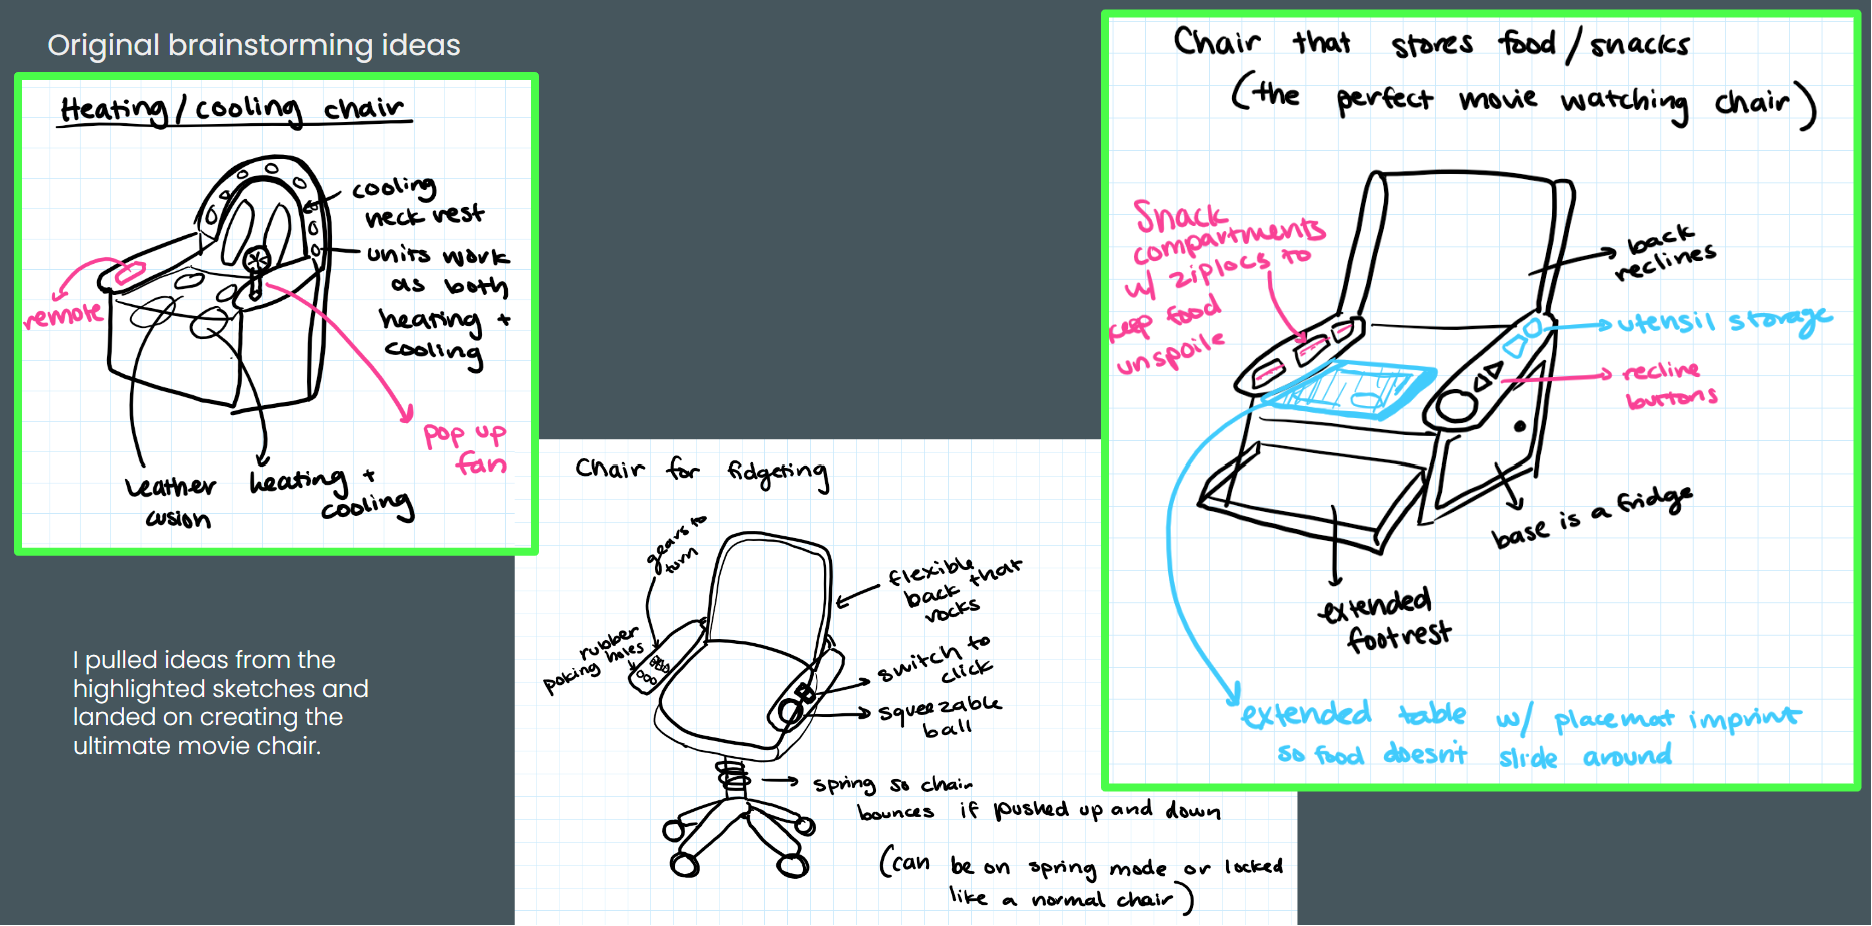 Original brainstorming ideas
Heating/cooling chair
cooling
neck rest
units work
as both
heating +
cooling
remote
pop up
fan
leather
cusion
heating +
cooling
I pulled ideas from the
highlighted sketches and
landed on creating the
ultimate movie chair.
Chair for fidgeting
gears to
turn
rubber
poking holes
flexible
back that
rocks
switch to
click
squeezable
ball
spring so chair
bounces if pushed up and down
(can be on spring mode or locked
like a normal chair)
Chair that stores food/snacks
(the perfect movie watching chair)
Snack
compartments
w/ ziplocs to
keep food
unspoile
back
reclines
utensil storage
recline
buttons
base is a fridge
extended
footrest
extended table w/ placemat imprint
so food doesn't slide around